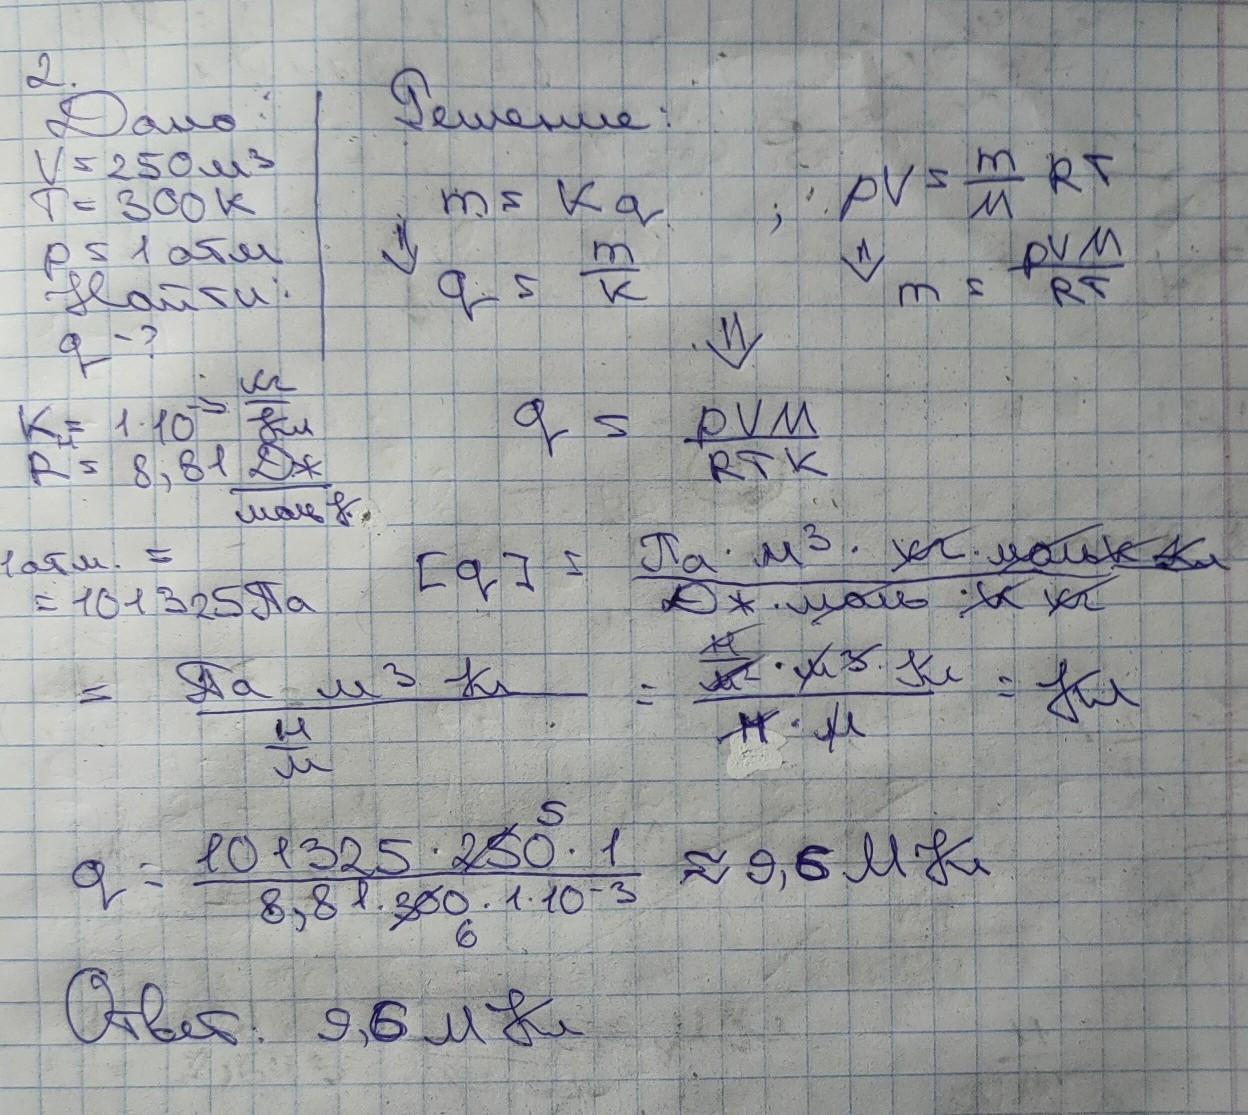 2.
Дано:
V = 250 м³
T = 300 К
p = 1 атм
Найти:
q - ?
K = 1·10⁻⁵ кг/Кл
R = 8,81 Дж/моль К
1 атм. =
= 101325 Па
Решение:
m = Kq ; pV = m/M RT
⇓ q = m/K ⇓ m = pVM/RT
⇓
q = pVM/RTK
[q] = Па · м³ · кг · моль К Кл / Дж · моль · К кг
= Па м³ Кл / Н/м = Н/м² · м³ · Кл / Н · м = Кл
q = 101325 · 250 5 · 1 / 8,81 · 300 6 · 1 · 10⁻³ ≈ 9,6 МКл
Ответ: 9,6 МКл